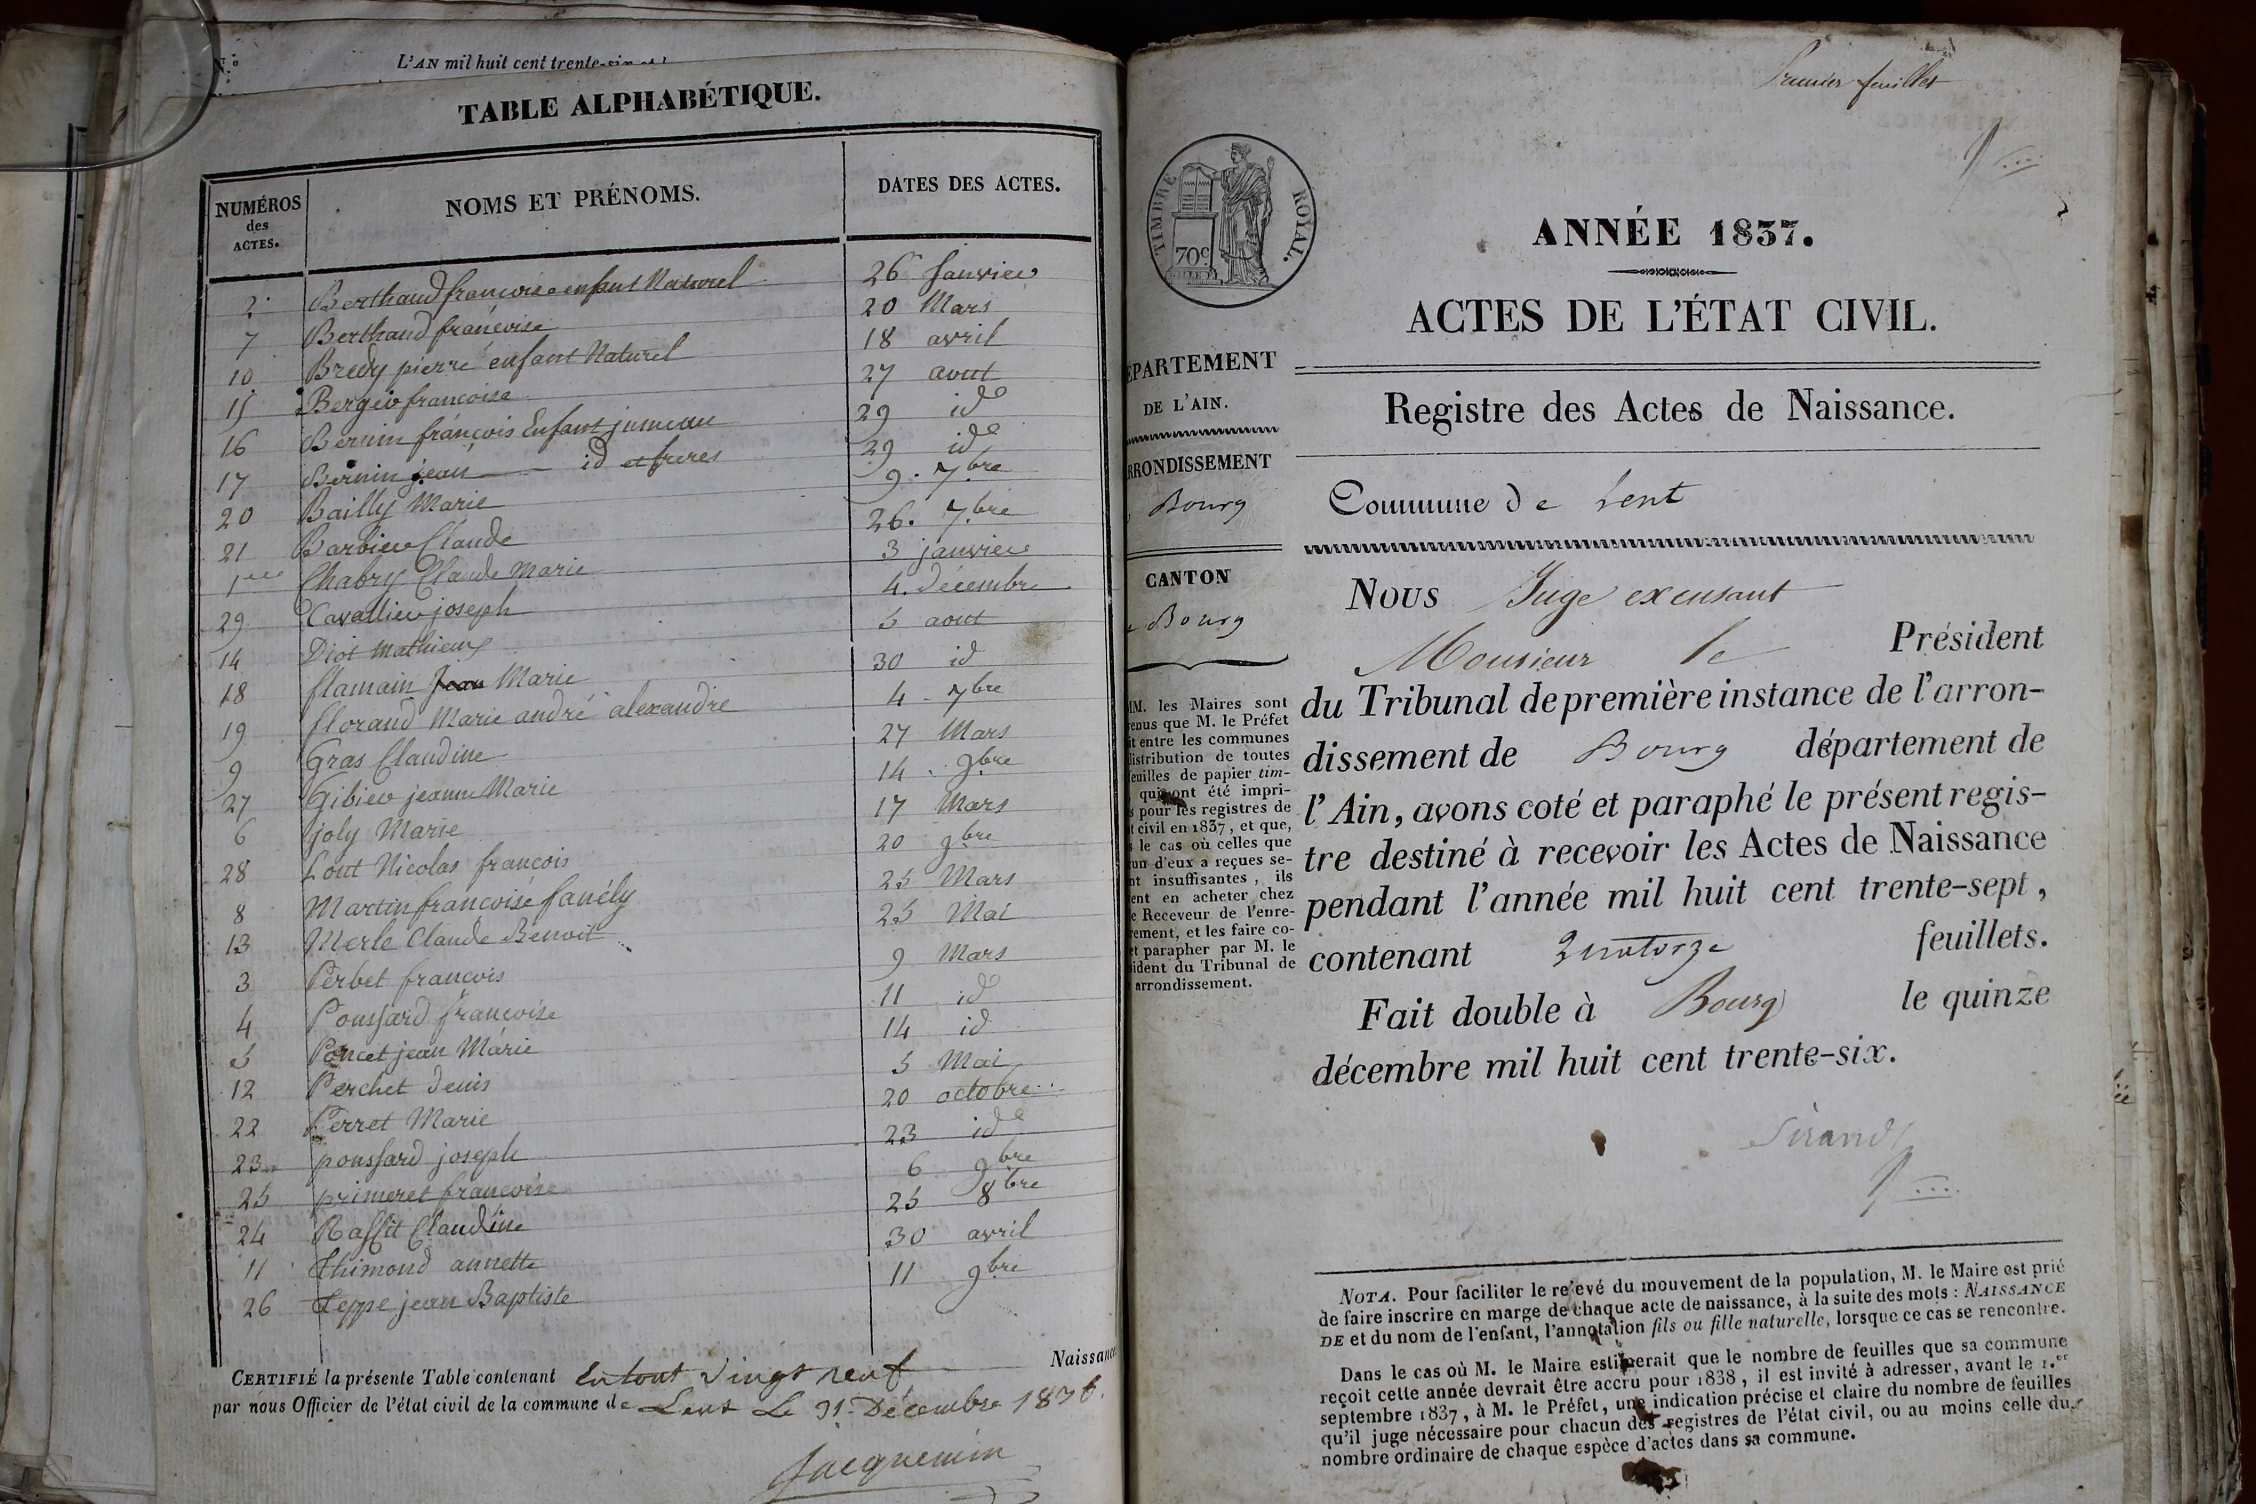 N.º
L'AN mil huit cent trente-six
TABLE ALPHABÉTIQUE.
NUMÉROS des ACTES. NOMS ET PRÉNOMS. DATES DES ACTES.
2 Berthaud françoise enfant Naturel 26 Janvier
7 Berthaud françoise 20 Mars
10 Bredy pierre enfant Naturel 18 avril
15 Bergier francoise 27 aout
16 Bernin françois Enfant jumeau 29 id
17 Bernin jean id et freres 29 id
20 Bailly Marie 9. 7bre
21 Barbier Claude 26. 7bre
1 Chabry Claude Marie 3 janvier
29 Cavallier joseph 4. décembre
14 Diot Mathieu 5 aout
18 flamain Jean Marie 30 id
19 floraud Marie andré alexandre 4 7bre
9 Gras Claudine 27 Mars
27 Gibier jeanne Marie 14. 9bre
6 joly Marie 17 Mars
28 Lout Nicolas françois 20 9bre
8 Martin françoise fanély 25 Mars
13 Merle Claude Benoit 25 Mai
3 Perbet francois 9 Mars
4 Poussard françoise 11 id
5 Poncet jean Marie 14 id
12 Perchet Denis 5 Mai
22 Perret Marie 20 octobre
23 poussard joseph 23 id
25 primeret francoise 6 9bre
24 Rassit Claudine 25 8bre
11 Thimond annette 30 avril
26 Teppe jean Baptiste 11 9bre
CERTIFIÉ la présente Table contenant en tout vingt neuf Naissance
par nous Officier de l'état civil de la commune de Lent Le 31 Décembre 1836.
Jacquemin
Premier feuillet
TIMBRE ROYAL.
70c
ANNÉE 1837.
ACTES DE L'ÉTAT CIVIL.
ÉPARTEMENT
DE L'AIN.
Registre des Actes de Naissance.
RRONDISSEMENT
Bourg
Commune de Lent
CANTON
Bourg
Nous Juge excusant
Monsieur le Président
du Tribunal de première instance de l'arron-
dissement de Bourg département de
l'Ain, avons coté et paraphé le présent regis-
tre destiné à recevoir les Actes de Naissance
pendant l'année mil huit cent trente-sept,
contenant quatorze feuillets.
Fait double à Bourg le quinze
décembre mil huit cent trente-six.
Sirand
MM. les Maires sont
enus que M. le Préfet
it entre les communes
distribution de toutes
feuilles de papier tim-
qui ont été impri-
s pour les registres de
t civil en 1837, et que,
s le cas où celles que
un d'eux a reçues se-
nt insuffisantes, ils
ent en acheter chez
e Receveur de l'enre-
rement, et les faire co-
et parapher par M. le
ident du Tribunal de
arrondissement.
NOTA. Pour faciliter le relevé du mouvement de la population, M. le Maire est prié
de faire inscrire en marge de chaque acte de naissance, à la suite des mots : NAISSANCE
DE et du nom de l'enfant, l'annotation fils ou fille naturelle, lorsque ce cas se rencontre.
Dans le cas où M. le Maire estimerait que le nombre de feuilles que sa commune
reçoit cette année devrait être accru pour 1838, il est invité à adresser, avant le 1.er
septembre 1837, à M. le Préfet, une indication précise et claire du nombre de feuilles
qu'il juge nécessaire pour chacun des registres de l'état civil, ou au moins celle du
nombre ordinaire de chaque espèce d'actes dans sa commune.